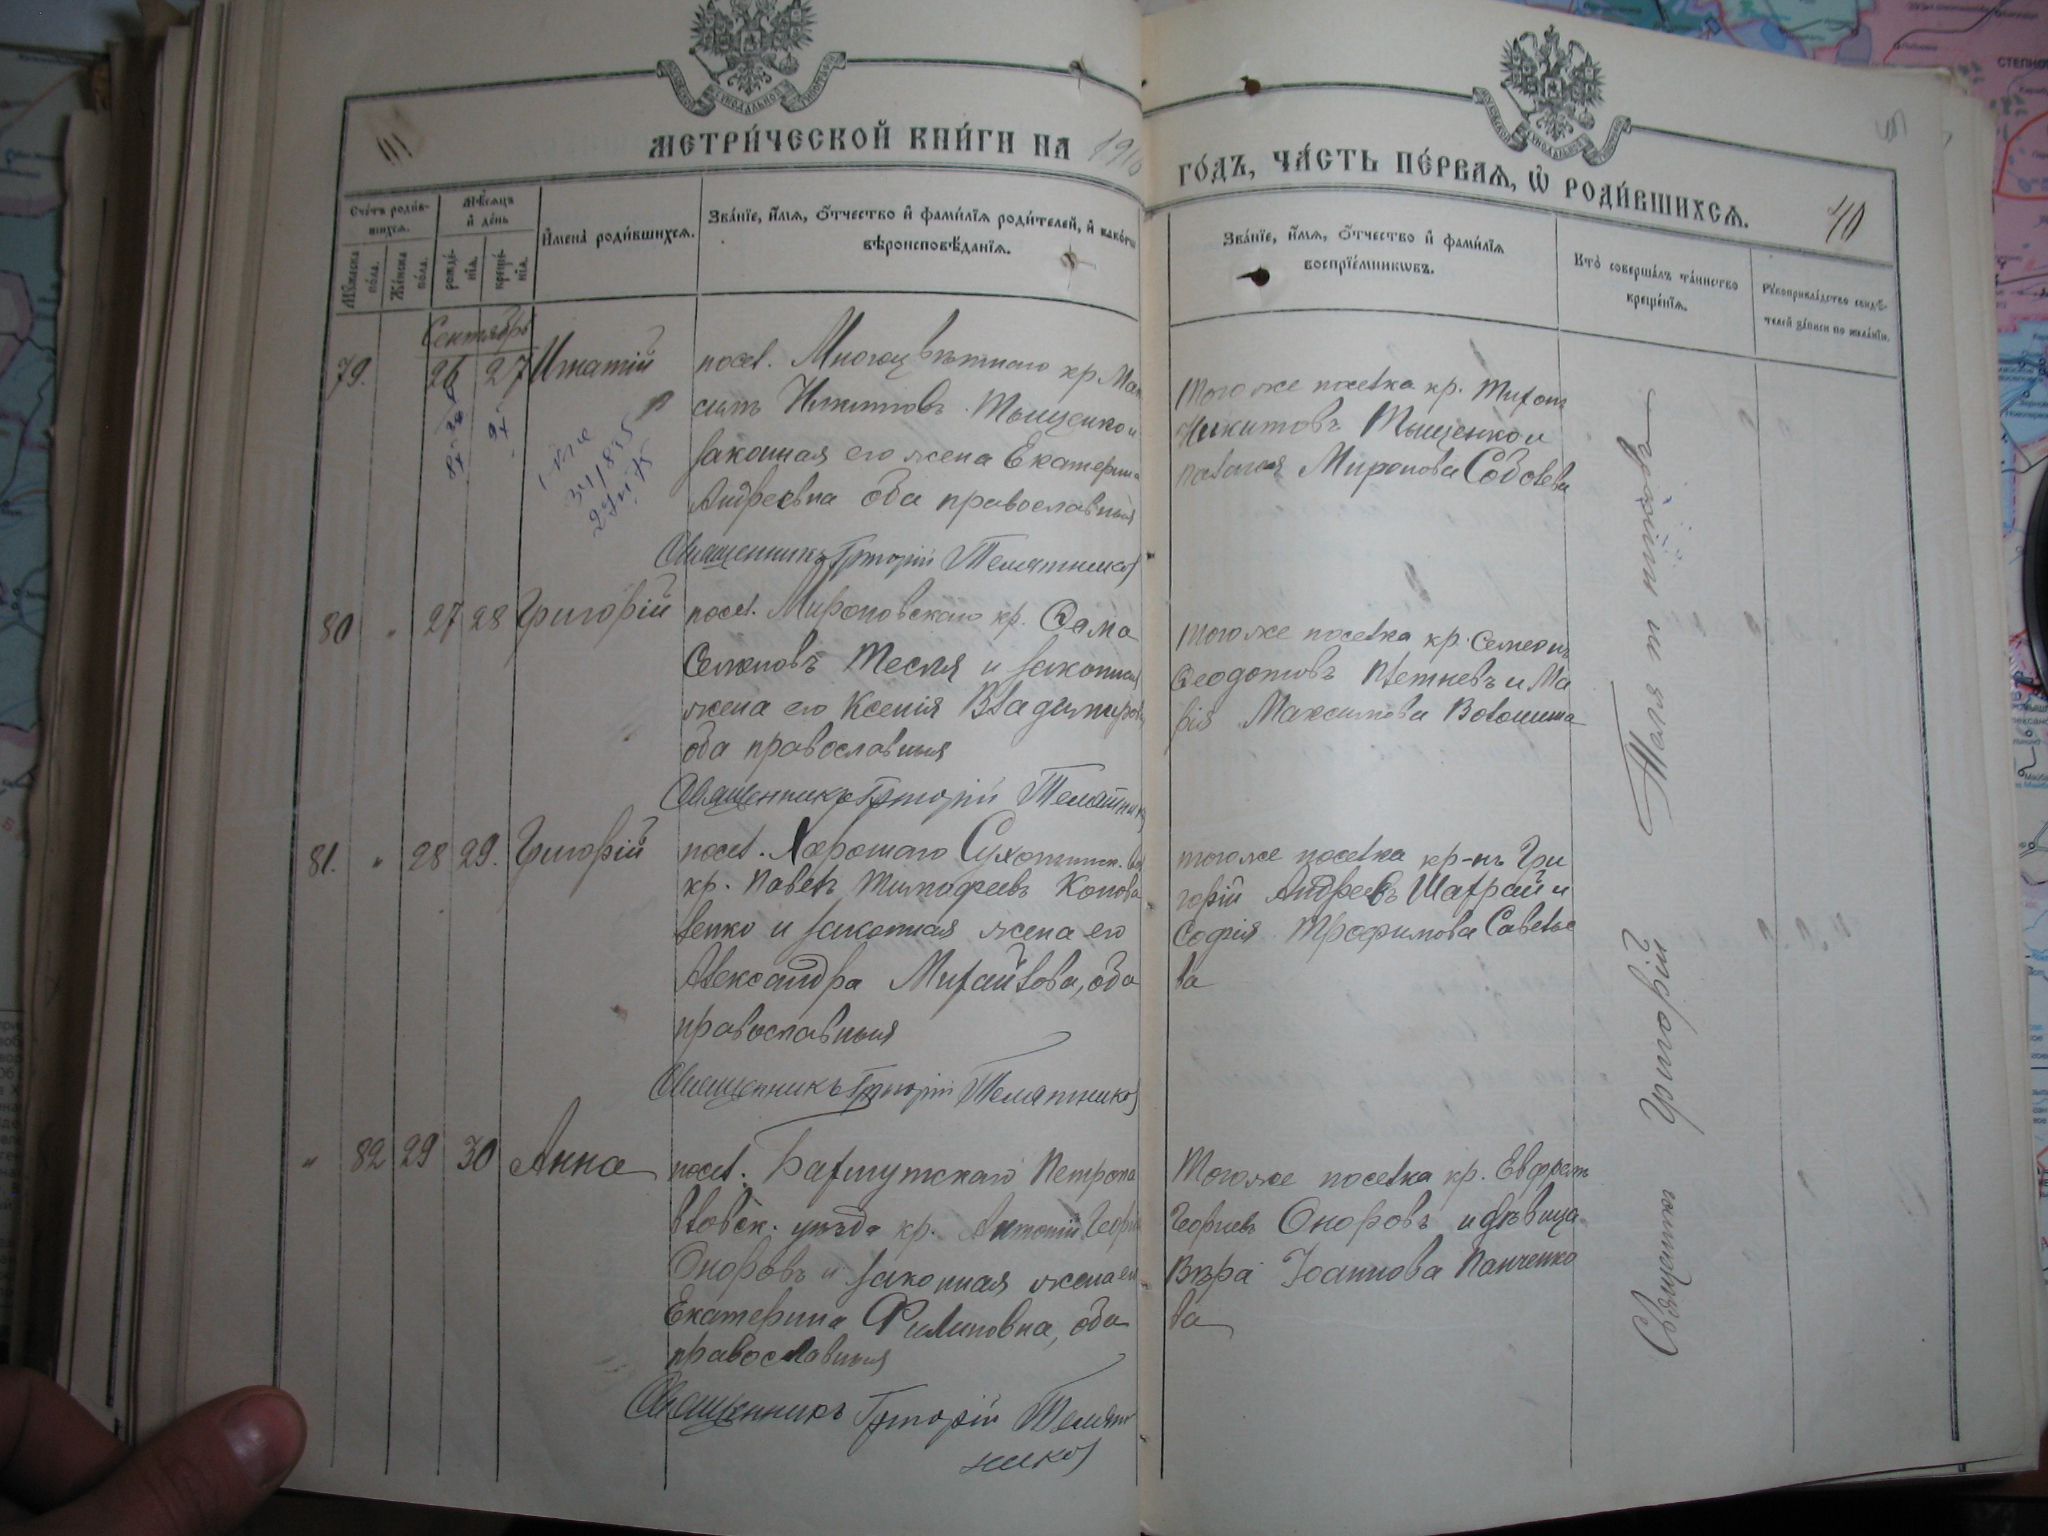 МЕТРИ́ЧЕСКОЙ КНИ́ГИ НА 1916
ГО́ДЪ, ЧА́СТЬ ПЕ́РВАѦ, Ѡ҆ РОДИ́ВШИХСѦ.
40
Сче́тъ роди́в-
шихсѧ.
Мꙋ́жеска по́ла.
Же́нска по́ла.
Мѣ́сѧцъ
и҆ де́нь
рожде́нїѧ.
креще́нїѧ.
И҆мена̀ роди́вшихсѧ.
Зва́нїе, и҆́мѧ, ѻ҆́тчество и҆ фами́лїѧ роди́телей, и҆ како́гѡ
вѣроисповѣ́данїѧ.
Зва́нїе, и҆́мѧ, ѻ҆́тчество и҆ фами́лїѧ
воспрїе́мникѡвъ.
Кто̀ соверша́лъ та́инство
креще́нїѧ.
Рꙋкоприкла́дство свидѣ́-
телей за́писи по жела́нїю.
Сентябрь
79. 26 27 Игнатій
посел. Многоцвѣтнаго кр. Мак
симъ Никитовъ Тыщенко и
законная его жена Екатерина
Андреевна оба православныя
Священникъ Григорій Телятников
того же поселка кр. Тихонъ
Никитовъ Тыщенко и
Пелагея Миронова Соболева
80 " 27 28 Григорій
посел. Мироновскаго кр. Ѳома
Семеновъ Тесля и законная
жена его Ксенія Владимирова
оба православныя
Священникъ Григорій Телятник
того же поселка кр. Семеонъ
Ѳеодотовъ Плетневъ и Ма
рія Максимова Волошина
81. " 28 29. Григорій
посел. Хорошаго Сухотинск. вол
кр. Павелъ Тимофеевъ Конова
ленко и законная жена его
Александра Михайлова, оба
православныя
Священникъ Григорій Телятников
того же поселка кр-нъ Гри
горій Андреевъ Шахрай и
Софія Трофимова Савелье
ва
" 82 29 30 Анна
посел. Бахмутскаго Петропа
вловск. уѣзда кр. Антоній Георгіе
Оноровъ и законная жена его
Екатерина Филиповна, оба
православныя
Священникъ Григорій Телят
ников
Того же поселка кр. Евфремъ
Георгіевъ Оноровъ и дѣвица
Вѣра Іоаннова Панченко
ва
Священникъ Григорій Телятниковъ